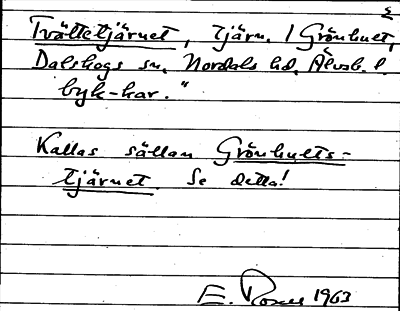 Tvättetjärnet, tjärn. / Grönhult,
Dalskogs sn. Nordals hd. Älvsb. l.
byk-kar."
Kallas sällan Grönhults-
tjärnet. Se detta!
E. 1963